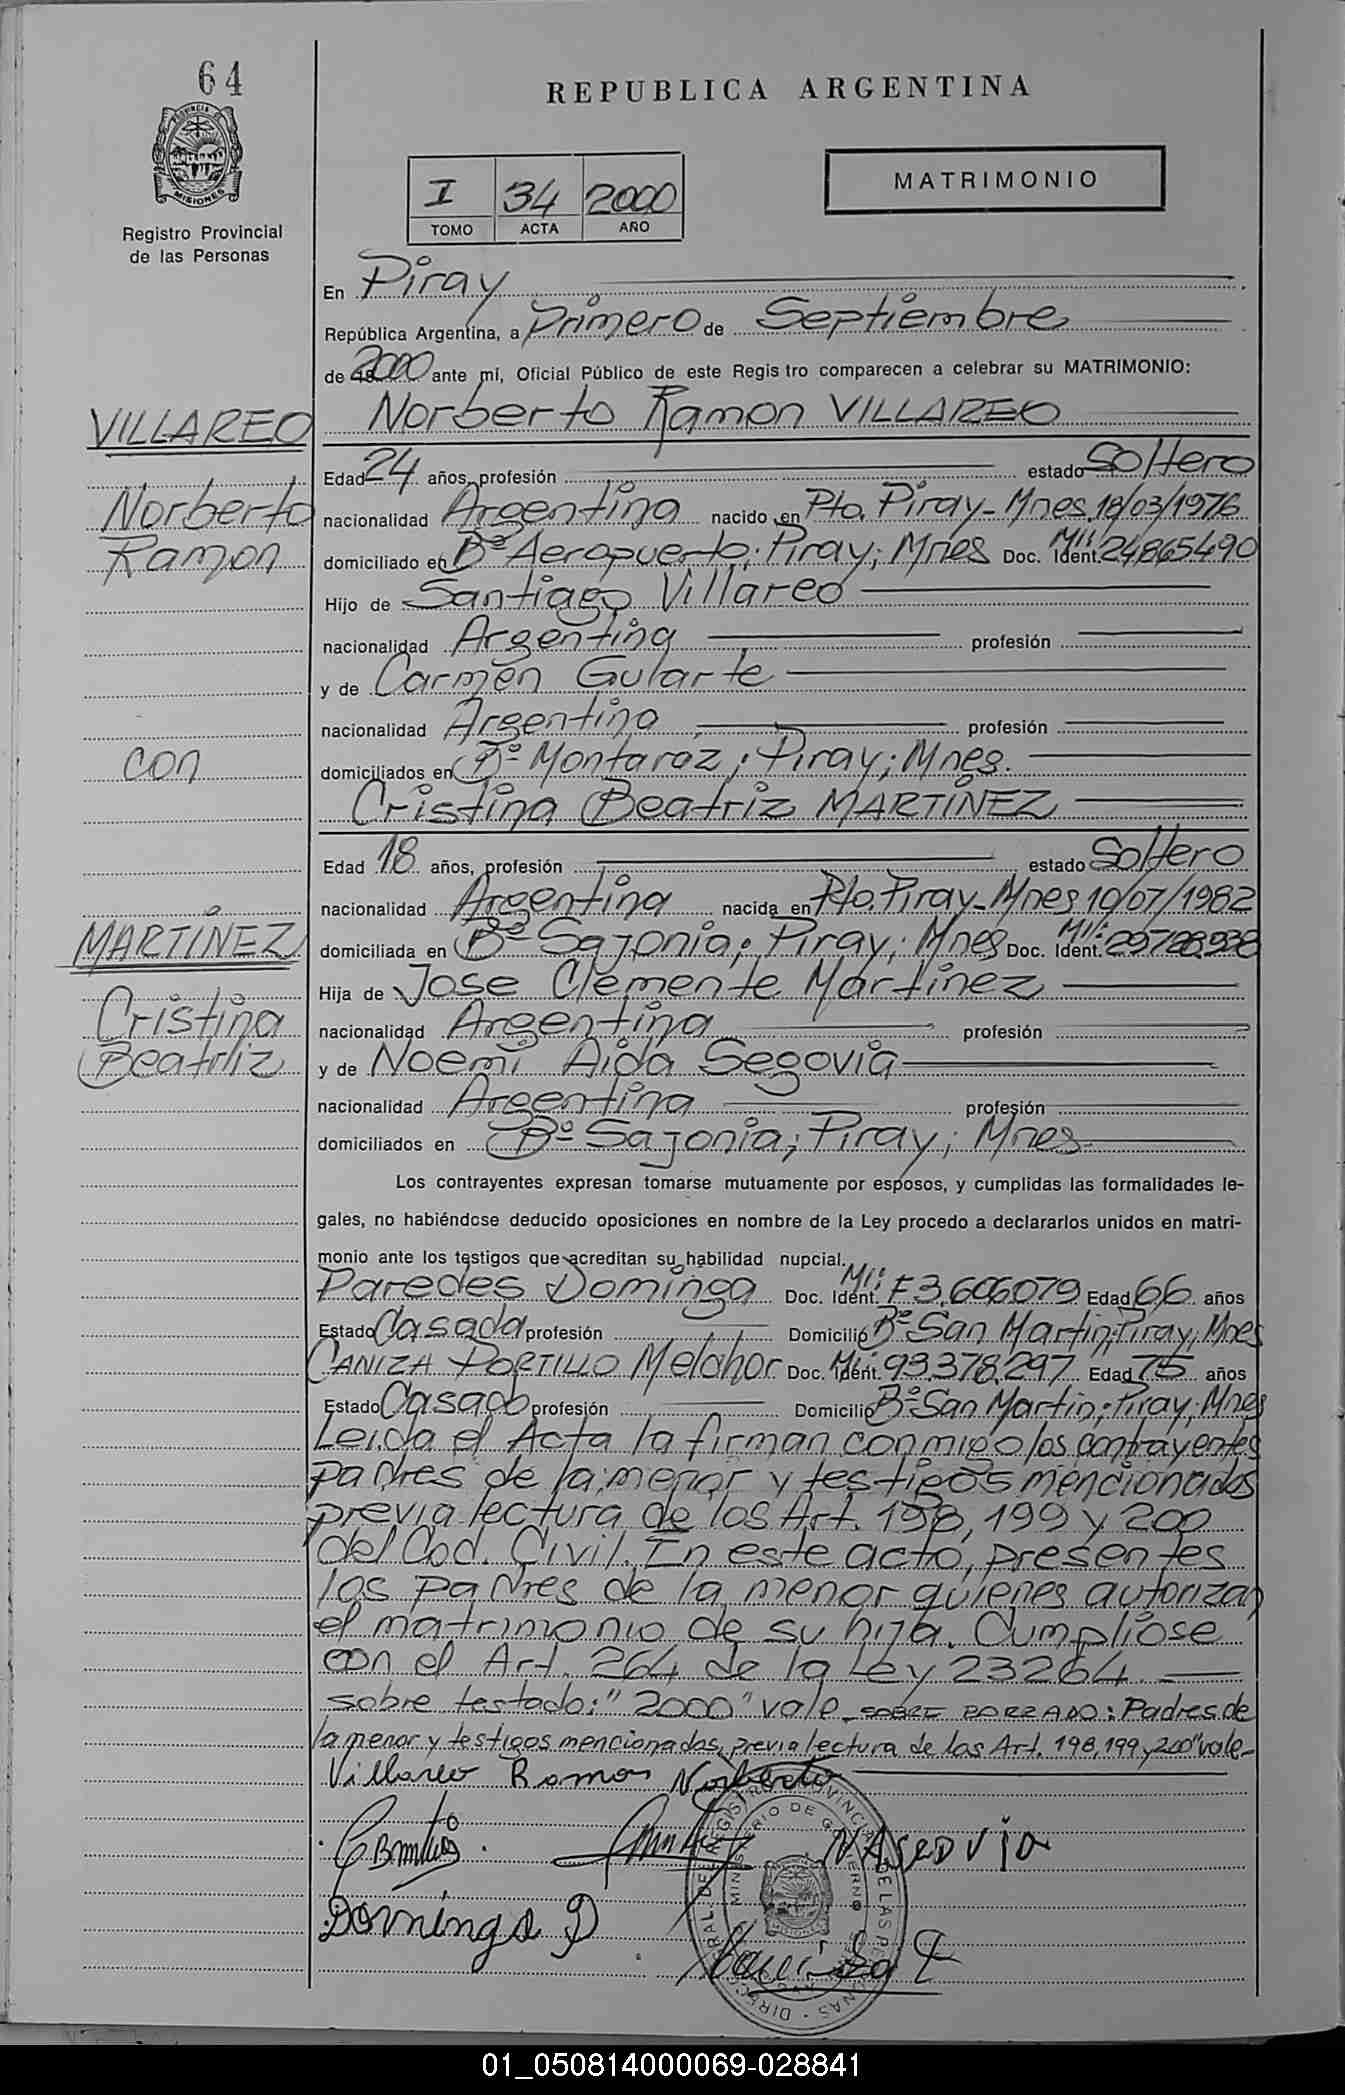 64
REPUBLICA ARGENTINA
PROVINCIA DE MISIONES
Registro Provincial
de las Personas
I 34 2000
TOMO ACTA AÑO
MATRIMONIO
En Piray
República Argentina, a Primero de Septiembre
de 2000 ante mí, Oficial Público de este Registro comparecen a celebrar su MATRIMONIO:
Norberto Ramon VILLAREO
VILLAREO
Norberto
Ramon
Edad 24 años, profesión estado Soltero
nacionalidad Argentina nacido en Pto. Piray-Mnes. 18/03/1976
domiciliado en Bº Aeropuerto; Piray; Mnes Doc. Ident. M.I: 24.865.490
Hijo de Santiago Villareo
nacionalidad Argentina profesión
y de Carmen Gularte
nacionalidad Argentina profesión
con
domiciliados en Bº Montaraz; Piray; Mnes.
Cristina Beatriz MARTINEZ
Edad 18 años, profesión estado Soltero
nacionalidad Argentina nacida en Pto. Piray-Mnes 10/07/1982
MARTINEZ
Cristina
Beatriz
domiciliada en Bº Sajonia; Piray; Mnes Doc. Ident. M.I: 29.728.938
Hija de Jose Clemente Martinez
nacionalidad Argentina profesión
y de Noemi Aida Segovia
nacionalidad Argentina profesión
domiciliados en Bº Sajonia; Piray; Mnes
Los contrayentes expresan tomarse mutuamente por esposos, y cumplidas las formalidades le-
gales, no habiéndose deducido oposiciones en nombre de la Ley procedo a declararlos unidos en matri-
monio ante los testigos que acreditan su habilidad nupcial.
Paredes Dominga Doc. Ident. M.I: F3.606.079 Edad 66 años
Estado Casada profesión Domicilio Bº San Martin; Piray; Mnes
CANIZA PORTILLO Melchor Doc. Ident. M.I: 93.378.297 Edad 75 años
Estado Casado profesión Domicilio Bº San Martin; Piray; Mnes
Leida el Acta la firman conmigo los contrayentes
padres de la menor y testigos mencionados
previa lectura de los Art. 198, 199 y 200
del Cod. Civil. En este acto, presentes
los padres de la menor quienes autorizan
el matrimonio de su hija. Cumpliose
con el Art. 264 de la Ley 23264.
sobre testado: "2000" vale - SOBRE BORRADO: Padres de
la menor y testigos mencionados, previa lectura de los Art. 198, 199 y 200" vale-
Villareo Ramon Norberto
N A Segovia
Dominga P
Caniza
MINISTERIO DE GOBIERNO
01_050814000069-028841